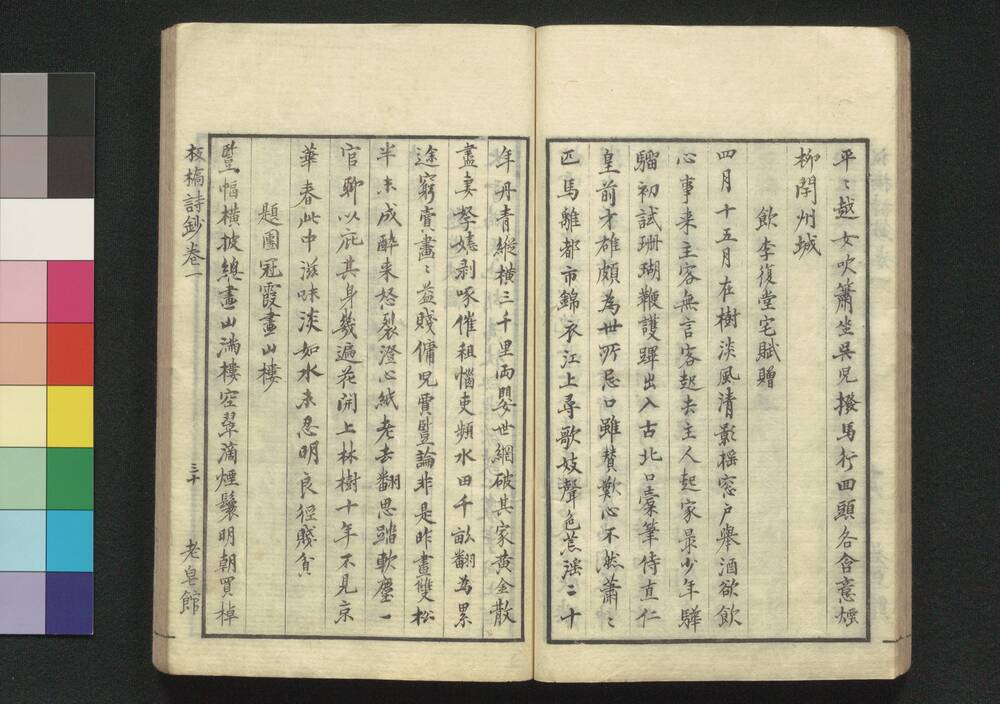 平〻越女吹簫坐吳兒撥馬行回頭各含意煙
柳閉州城
飲李復堂宅賦贈
四月十五月在樹淡風清影搖窓戶舉酒欲飲
心事来主客無言客起去主人起家最少年驊
騮初試珊瑚鞭護蹕出入古北口櫜筆侍直仁
皇前才雄頗為世所忌口雖賛歎心不然蕭〻
匹馬離都市錦衣江上尋歌妓聲色荒淫二十
年丹青縱橫三千里両嬰世網破其家黄金散
盡妻孥嬉剥啄催租惱吏頻水田千畝翻為累
途窮賣畫〻益賤傭兒賈豎論非是昨畫雙松
半未成醉来怒裂澄心紙老去翻思踏軟塵一
官聊以庇其身幾遍花開上林樹十年不見京
華春此中滋味淡如水未忍明良徑賤貧
題團冠霞畫山樓
竪幅橫披總畫山滿樓空翠滴煙鬟明朝買棹
板橋詩鈔卷一
三十
老皂館